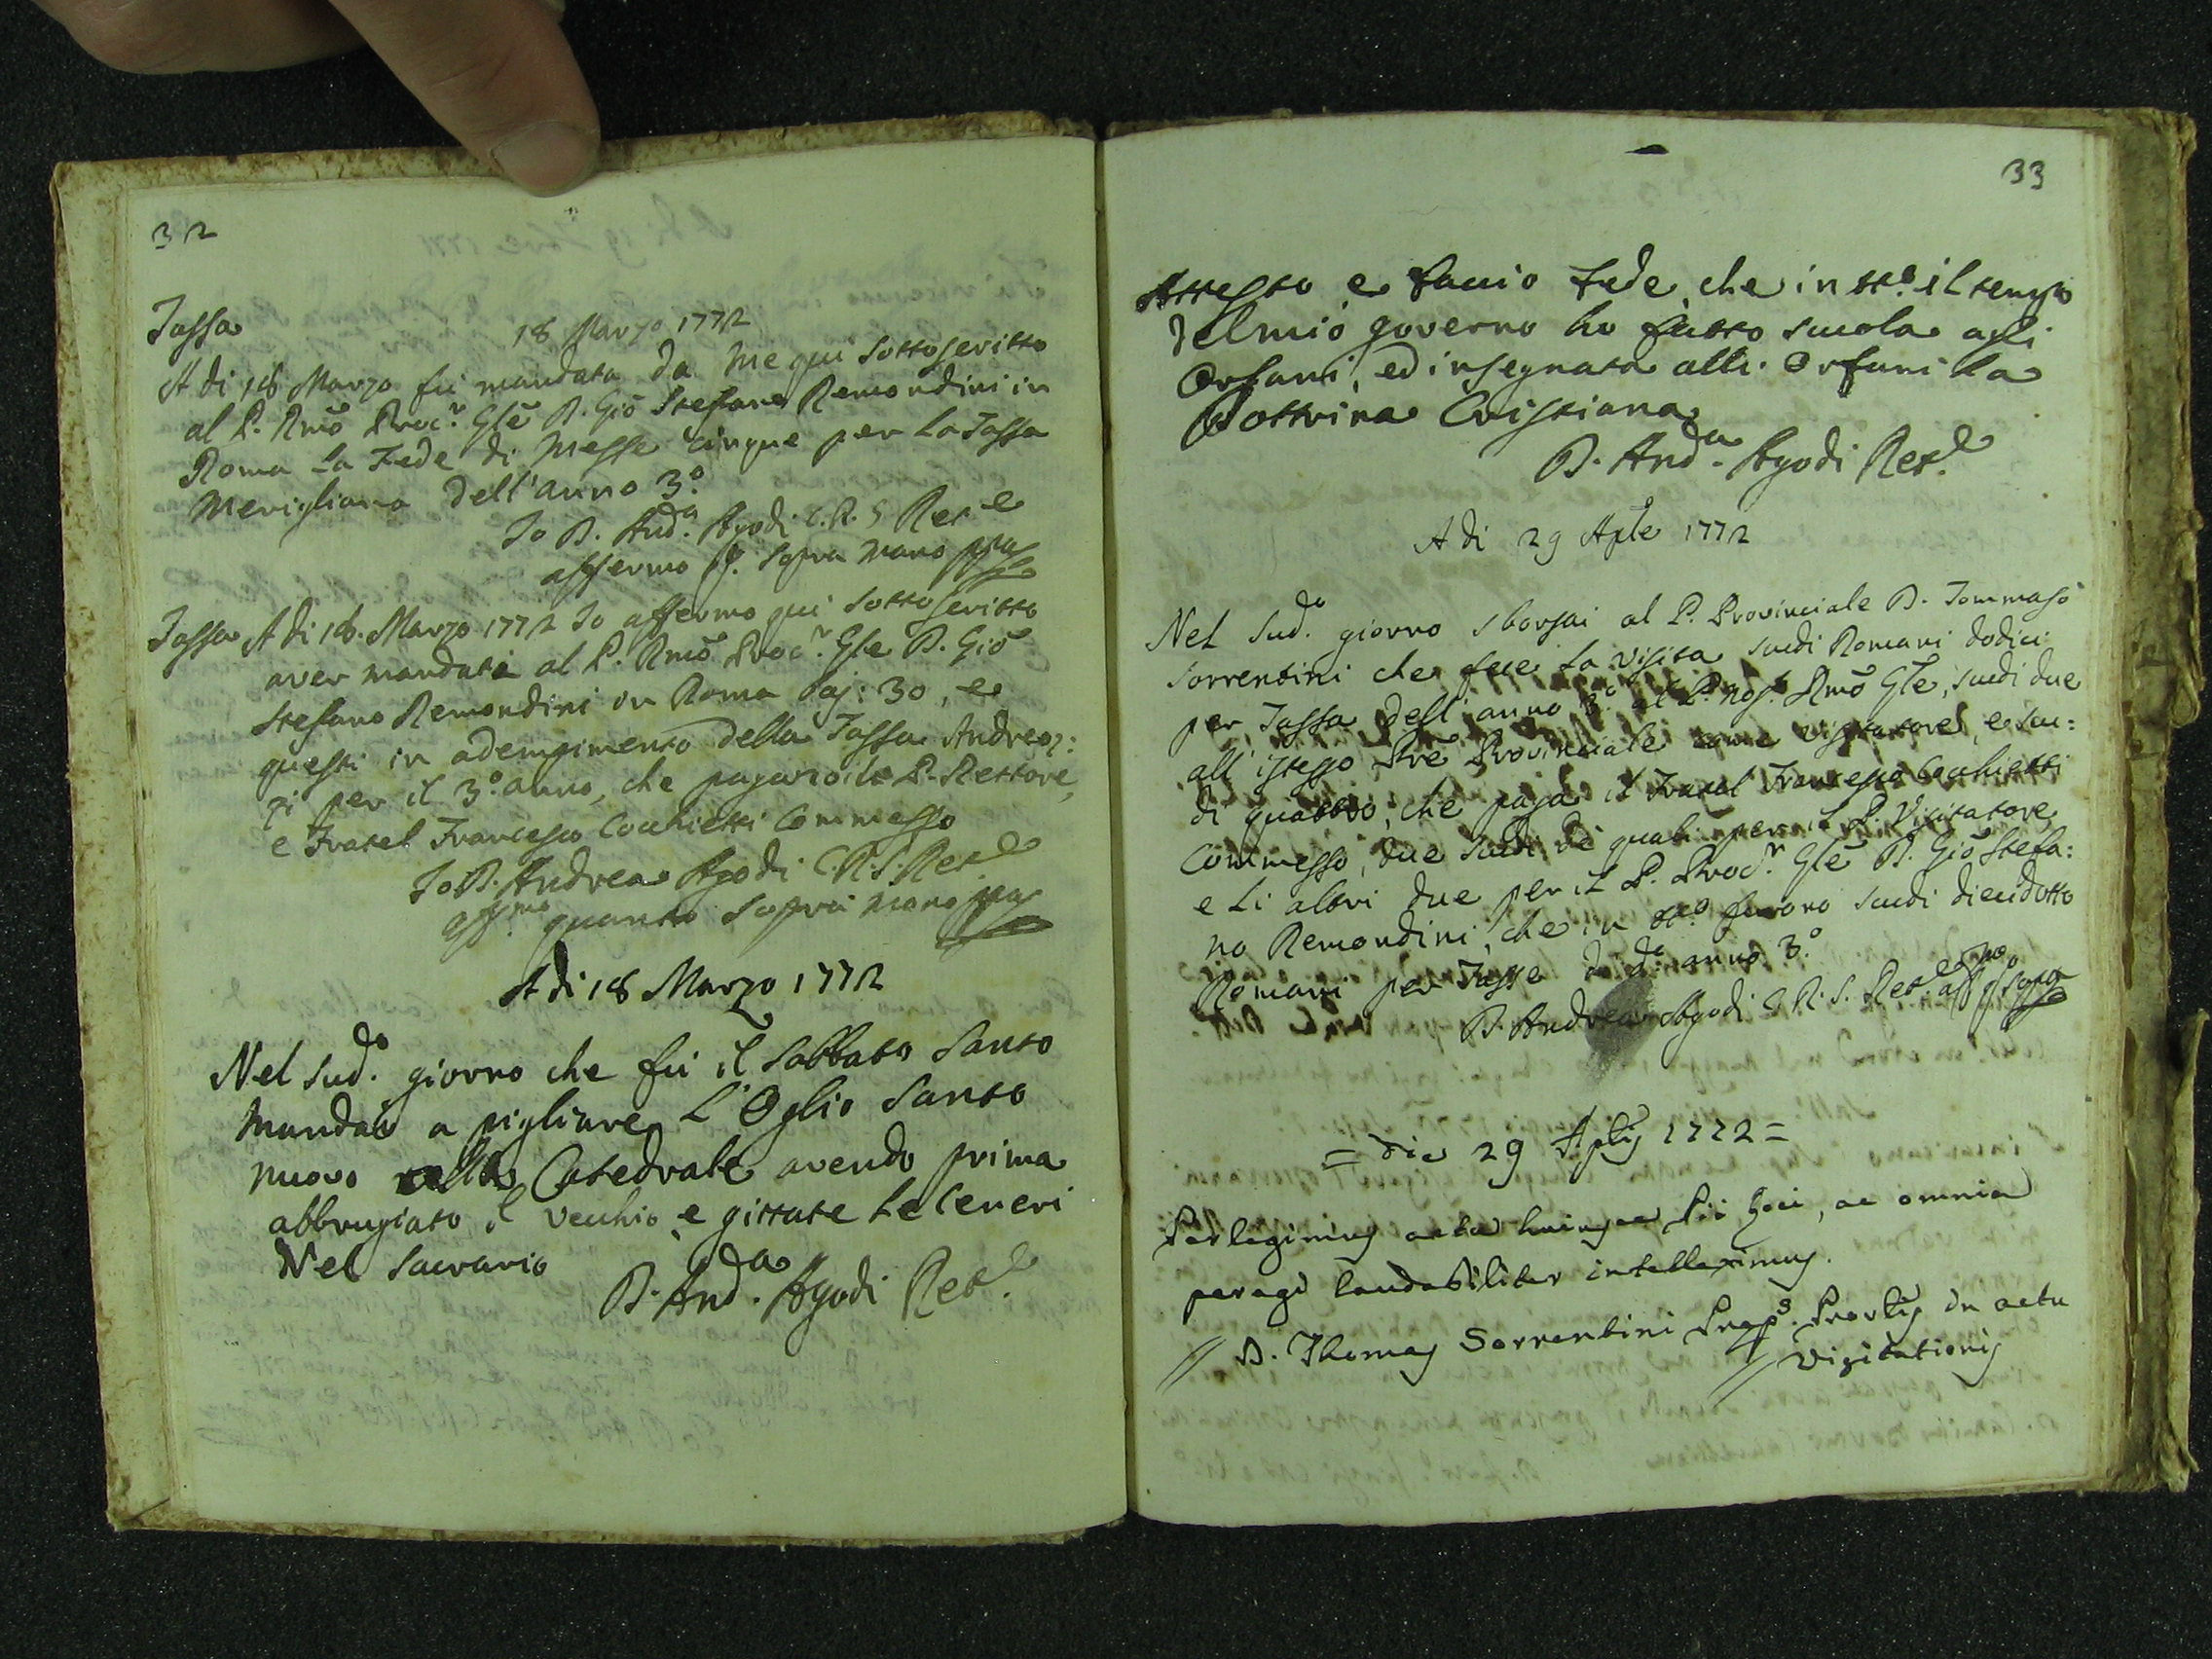 32
Tassa
18 Marzo 1772
A di 18 Marzo fù mandata da me qui sottoscritto
al P. Rmõ Procr. Glẽ D. Giõ Stefano Remondini in
Roma la Fede di Messe cinque per la Tassa
Merigliana dell'anno 3.º
Io D. Andª. Agodi C.R.S. Rete
affermo q. sopra mano ppa
Tassa A di 18. Marzo 1772 Io affermo qui sottoscritto
aver mandati al P. Rmõ Procr. Gle D. Giõ
Stefano Remondini in Roma Paj: 30, e
questi in adempimento della Tassa Andreoz:
zi per il 3º anno, che pagano il P. Rettore,
e Fratel Francesco Cocchietti Commesso
Io D. Andrea Agodi C.R.S. Rete
affmo quanto sopra mano ppa
A di 18 Marzo 1772
Nel sudº. giorno che fù il Sabbato Santo
mandai a pigliare l'Oglio Santo
nuovo alla Catedrale avendo prima
abbrugiato il vecchio, e gittate le ceneri
Nel sacrario
D. Andª. Agodi Rete.
33
Attesto e faccio Fede, che in ttº. il tempo
del mio governo ho fatto scuola agli
Orfani, ed insegnata alli Orfani la
Dottrina Cristiana
D. Andª. Agodi Rete.
A di 29 Aplẽ 1772
Nel sudº. giorno sborsai al P. Provinciale D. Tommaso
Sorrentini che fece la visita scudi Romani dodici
per Tassa dell'anno 3.º al P. nos. Rmõ Glẽ, scudi due
all'istesso Prẽ Provinciale come visitatore, e scu:
di quattro, che paga il Fratel Francesco Cocchietti
Commesso, due scudi de quali per il P. Visitatore,
e li altri due per il P. Procr. Glẽ D. Giõ Stefa:
no Remondini, che in ttº. furono scudi dieciotto
Romani per Tasse di dº. anno 3.º
D. Andrea Agodi C.R.S. Rete affmo q. sopra
= Die 29 Aplis 1772 =
Perlegimus acta huiusce Pii Loci, ac omnia
peragi laudabiliter intelleximus.
// D. Thomas Sorrentini Praeps. Provlis in actu
// Visitationis